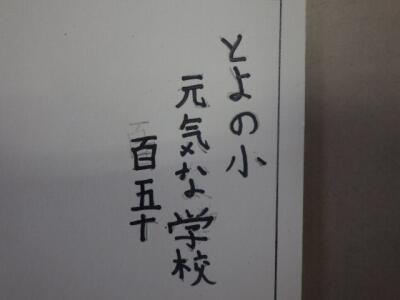 とよの小
元気な学校
百五十